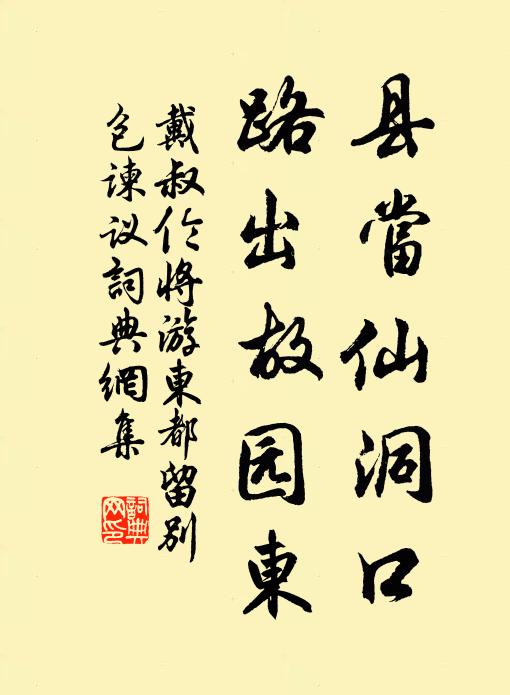 县當仙洞口
路出故园東
戴叔伦将游東都留别
包谏议詞典網集
詞典
网印